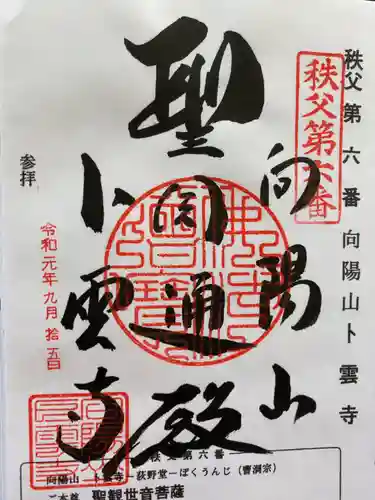 秩父第六番向陽山卜雲寺
秩父第六番
向陽山
聖円通殿
卜雲寺
参拝
令和元年九月拾五日
佛法僧寶
秩父第六番
向陽山－卜雲寺－荻野堂－ぼくうんじ（曹洞宗）
ご本尊 聖観世音菩薩